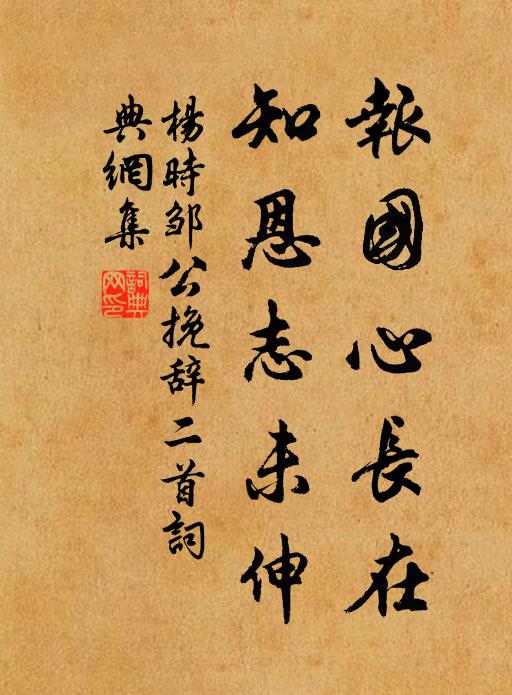 報國心長在
知恩志未伸
楊時邹公挽辞二首詞
典網集
詞典
网印